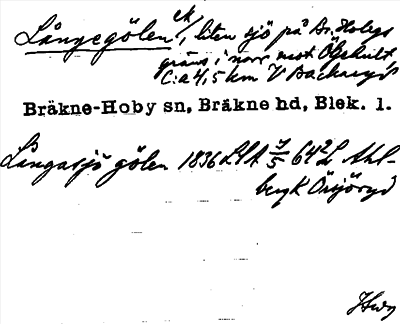 Långegölen ek, liten sjö på Br. Hobys
gräns i norr mot Öljehult,
C:a 4,5 km V Backaryd
Bräkne-Hoby sn, Bräkne hd, Blek. l.
Långasjö gölen 1836 LSA 7/5 642 L Ahl-
bryk Örsjöryd